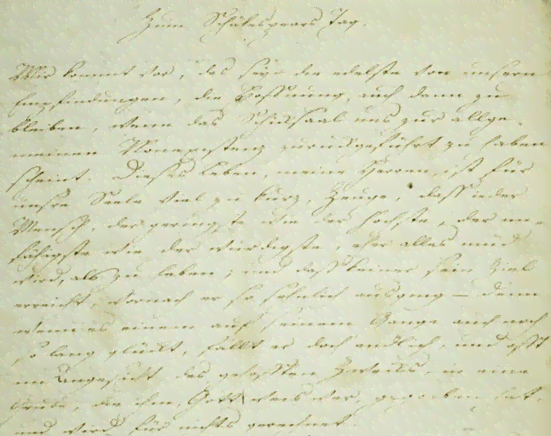 Zum Schäkespears Tag.
Mir kommt vor, das sey die edelste von unsern
Empfindungen, die Hoffnung, auch dann zu
bleiben, wenn das Schicksaal uns zur allge-
meinen Nonexistenz zurückgeführt zu haben
scheint. Dieses Leben, meine Herren, ist für
unsre Seele viel zu kurz, Zeuge, dass ieder
Mensch, der geringste wie der höchste, der un-
fähigste wie der würdigste, eher alles müd
wird, als zu leben; und dass keiner sein Ziel
erreicht, wornach er so sehnlich ausging – denn
wenn es einem auf seinem Gange auch noch
so lang glückt, fällt er doch endlich, und offt
im Angesicht des gehofften Zwecks, in eine
Grube, die ihm, Gott weis wer, gegraben hat,
und wird für nichts gerechnet.